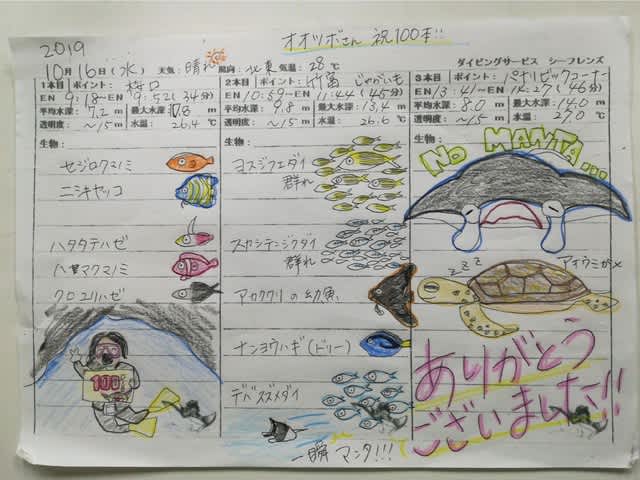 2019
オオツボさん 祝100本!!
10月16日(水) 天気: 晴れ 風向: 北東 気温: 28℃
ダイビングサービス シーフレンズ
1本目 ポイント:
EN 9:18~EN 9:52(34分)
平均水深: 7.2 m 最大水深: m
透明度: ~15 m 水温: 26.4 ℃
生物:
セジロクマノミ
ニシキヤッコ
ハタタテハゼ
ハマクマノミ
クロユリハゼ
100
2本目 ポイント: 竹富 じゃがいも
EN 10:59~EN 11:44(45分)
平均水深: 9.8 m 最大水深: 13.4 m
透明度: ~15 m 水温: 26.6 ℃
生物:
ヨスジフエダイ
群れ
スカシテンジクダイ
群れ
アカククリの幼魚
ナンヨウハギ(ドリー)
デバスズメダイ
一瞬 マンタ!!!
3本目 ポイント: パナリビッグコーナー
EN 13:41~EN 14:27(46分)
平均水深: 8.0 m 最大水深: 14.0 m
透明度: ~15 m 水温: 27.0 ℃
生物:
NO MANTA...
zzz
アオウミガメ
ありがとう
ございました!!